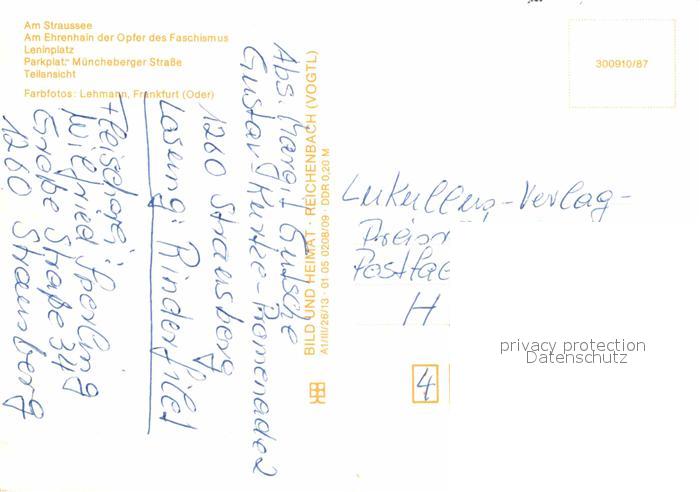 Am Straussee
Am Ehrenhain der Opfer des Faschismus
Leninplatz
Parkplatz Müncheberger Straße
Teilansicht
Farbfotos: Lehmann, Frankfurt (Oder)
Abs. Margit Gutsche
Gustav-Kurtze-Promenade 2
1260 Strausberg
Lösung: Rinderfilet
Fleischerei
Wilfried Sperling
Große Straße 34
1260 Strausberg
BILD UND HEIMAT · REICHENBACH (VOGTL)
A1/III/26/13 · 01 05 0208/09 · DDR 0,20 M
300910/87
Lukullus-Verlag-
Preisr
Postfac
H
4
privacy protection
Datenschutz